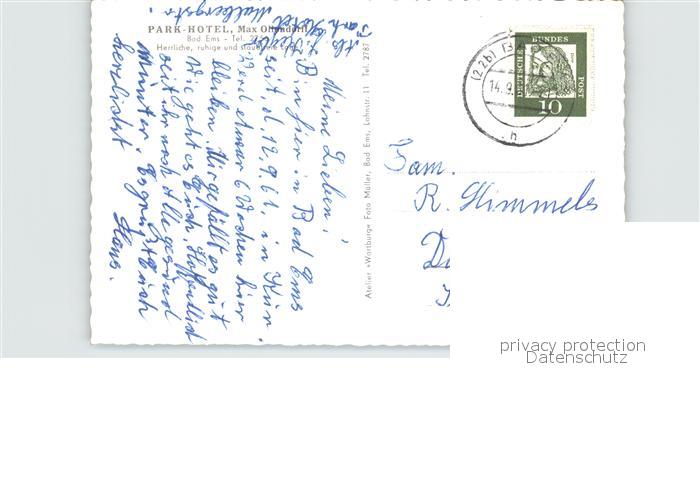 PARK-HOTEL, Max Ollendorff
Bad Ems - Tel.
Herrliche, ruhige und staubfreie Lage
Malbergstr.
Meine Lieben!
Bin hier in Bad Ems
seit d. 12.9.61, in Kur
werd etwar 6 Wochen hier
bleiben. Mir gefällt es gut
Wie geht es Euch, Hoffentlich
seit ihr noch alle gesund
Munter. Es grüßt Euch
herzlichst Hans.
Atelier »Wartburg« Foto Müller, Bad Ems, Lahnstr. 11 Tel. 2787
(22b)
14.9.
h
DEUTSCHE
BUNDES
POST
10
Fam.
R. Himmels
privacy protection
Datenschutz